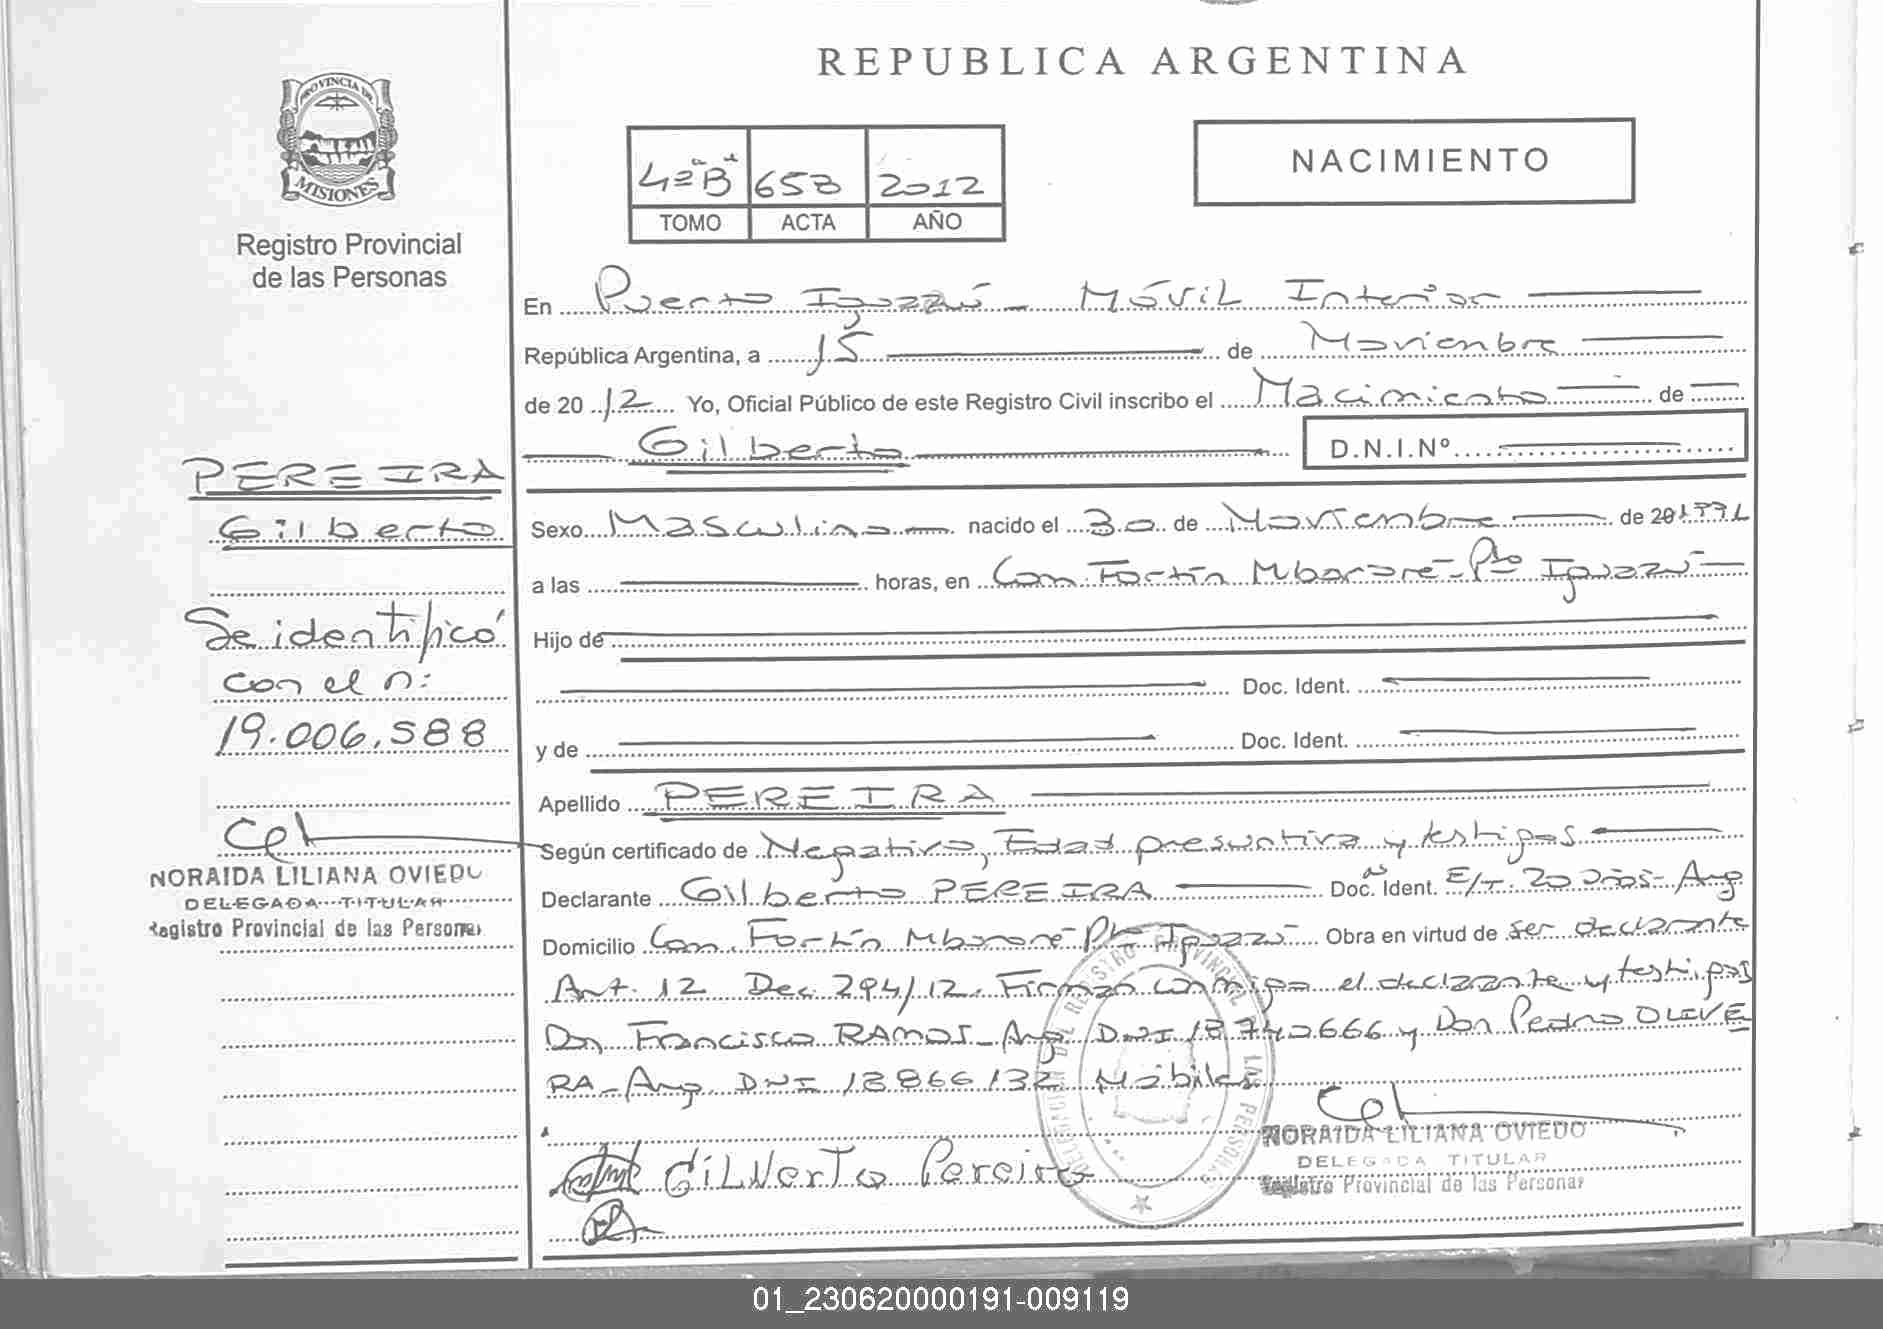 PROVINCIA DE
MISIONES
Registro Provincial
de las Personas
PEREIRA
Gilberto
Se identificó
con el n:
19.006.588
NORAIDA LILIANA OVIEDO
DELEGADA TITULAR
Registro Provincial de las Personas
REPUBLICA ARGENTINA
4º"B" 658 2012
TOMO ACTA AÑO
NACIMIENTO
En Puerto Iguazú - Móvil Interior
República Argentina, a 15 de Noviembre
de 2012 Yo, Oficial Público de este Registro Civil inscribo el Nacimiento de
Gilberto D.N.I.Nº
Sexo Masculino nacido el 30 de Noviembre de 201991
a las horas, en Com. Fortín Mbororé - Pto Iguazú
Hijo de
Doc. Ident.
y de Doc. Ident.
Apellido PEREIRA
Según certificado de Negativo, Edad presuntiva y testigos
Declarante Gilberto PEREIRA Doc. Ident. E/T. 20 años - Arg
Domicilio Com. Fortín Mbororé - Pto Iguazú Obra en virtud de ser declarante
Art. 12 Dec 294/12. Firman conmigo el declarante y testigos
Don Francisco RAMOS - Arg. DNI 18740666 y Don Pedro OLIVE
RA - Arg. DNI 18866132
Gilberto Pereira
NORAIDA LILIANA OVIEDO
DELEGADA TITULAR
Registro Provincial de las Personas
DELEGACION DEL REGISTRO PROVINCIAL DE LAS PERSONAS
01_230620000191-009119